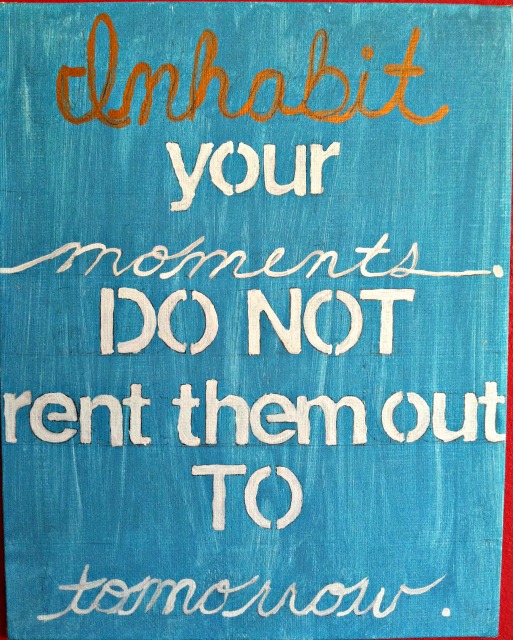 Inhabit
your
moments.
DO NOT
rent them out
TO
tomorrow.